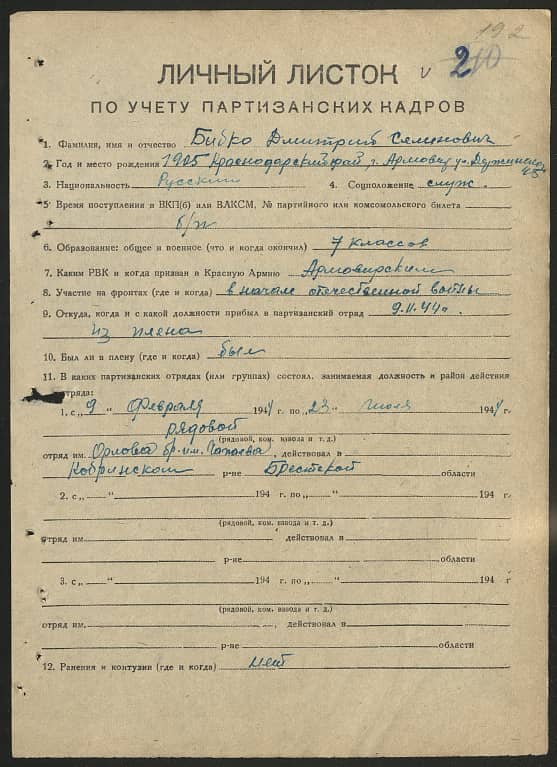 192
ЛИЧНЫЙ ЛИСТОК
2
ПО УЧЕТУ ПАРТИЗАНСКИХ КАДРОВ
1. Фамилия, имя и отчество Бибко Дмитрий Семенович
2. Год и место рождения 1905 Краснодарский край, г. Армовир ул.
45
3. Национальность Русский 4. Соцположение служ.
5. Время поступления в ВКП(б) или ВЛКСМ, № партийного или комсомольского билета
б/п
6. Образование: общее и военное (что и когда окончил) 7 классов
7. Каким РВК и когда призван в Красную Армию Армовирским
8. Участие на фронтах (где и когда) в начале отечественной войны
9. Откуда, когда и с какой должности прибыл в партизанский отряд 9.II.44г.
из плена
10. Был ли в плену (где и когда) был
11. В каких партизанских отрядах (или группах) состоял, занимаемая должность и район действия
отряда:
1. с „9 " Февраля 1944 г. по „23 " июля 1944 г.
рядовой
(рядовой, ком. взвода и т. д.)
отряд им. Орлова бр. им. Чапаева, действовал в
Кобринском р-не Брестской области
2. с „ " 194 г. по „ " 194 г.
(рядовой, ком. взвода и т. д.)
отряд им. действовал в
р-не области
3. с „ " 194 г. по „ " 194 г
(рядовой, ком. взвода и т. д.)
отряд им. , действовал в
р-не области
12. Ранения и контузии (где и когда) нет